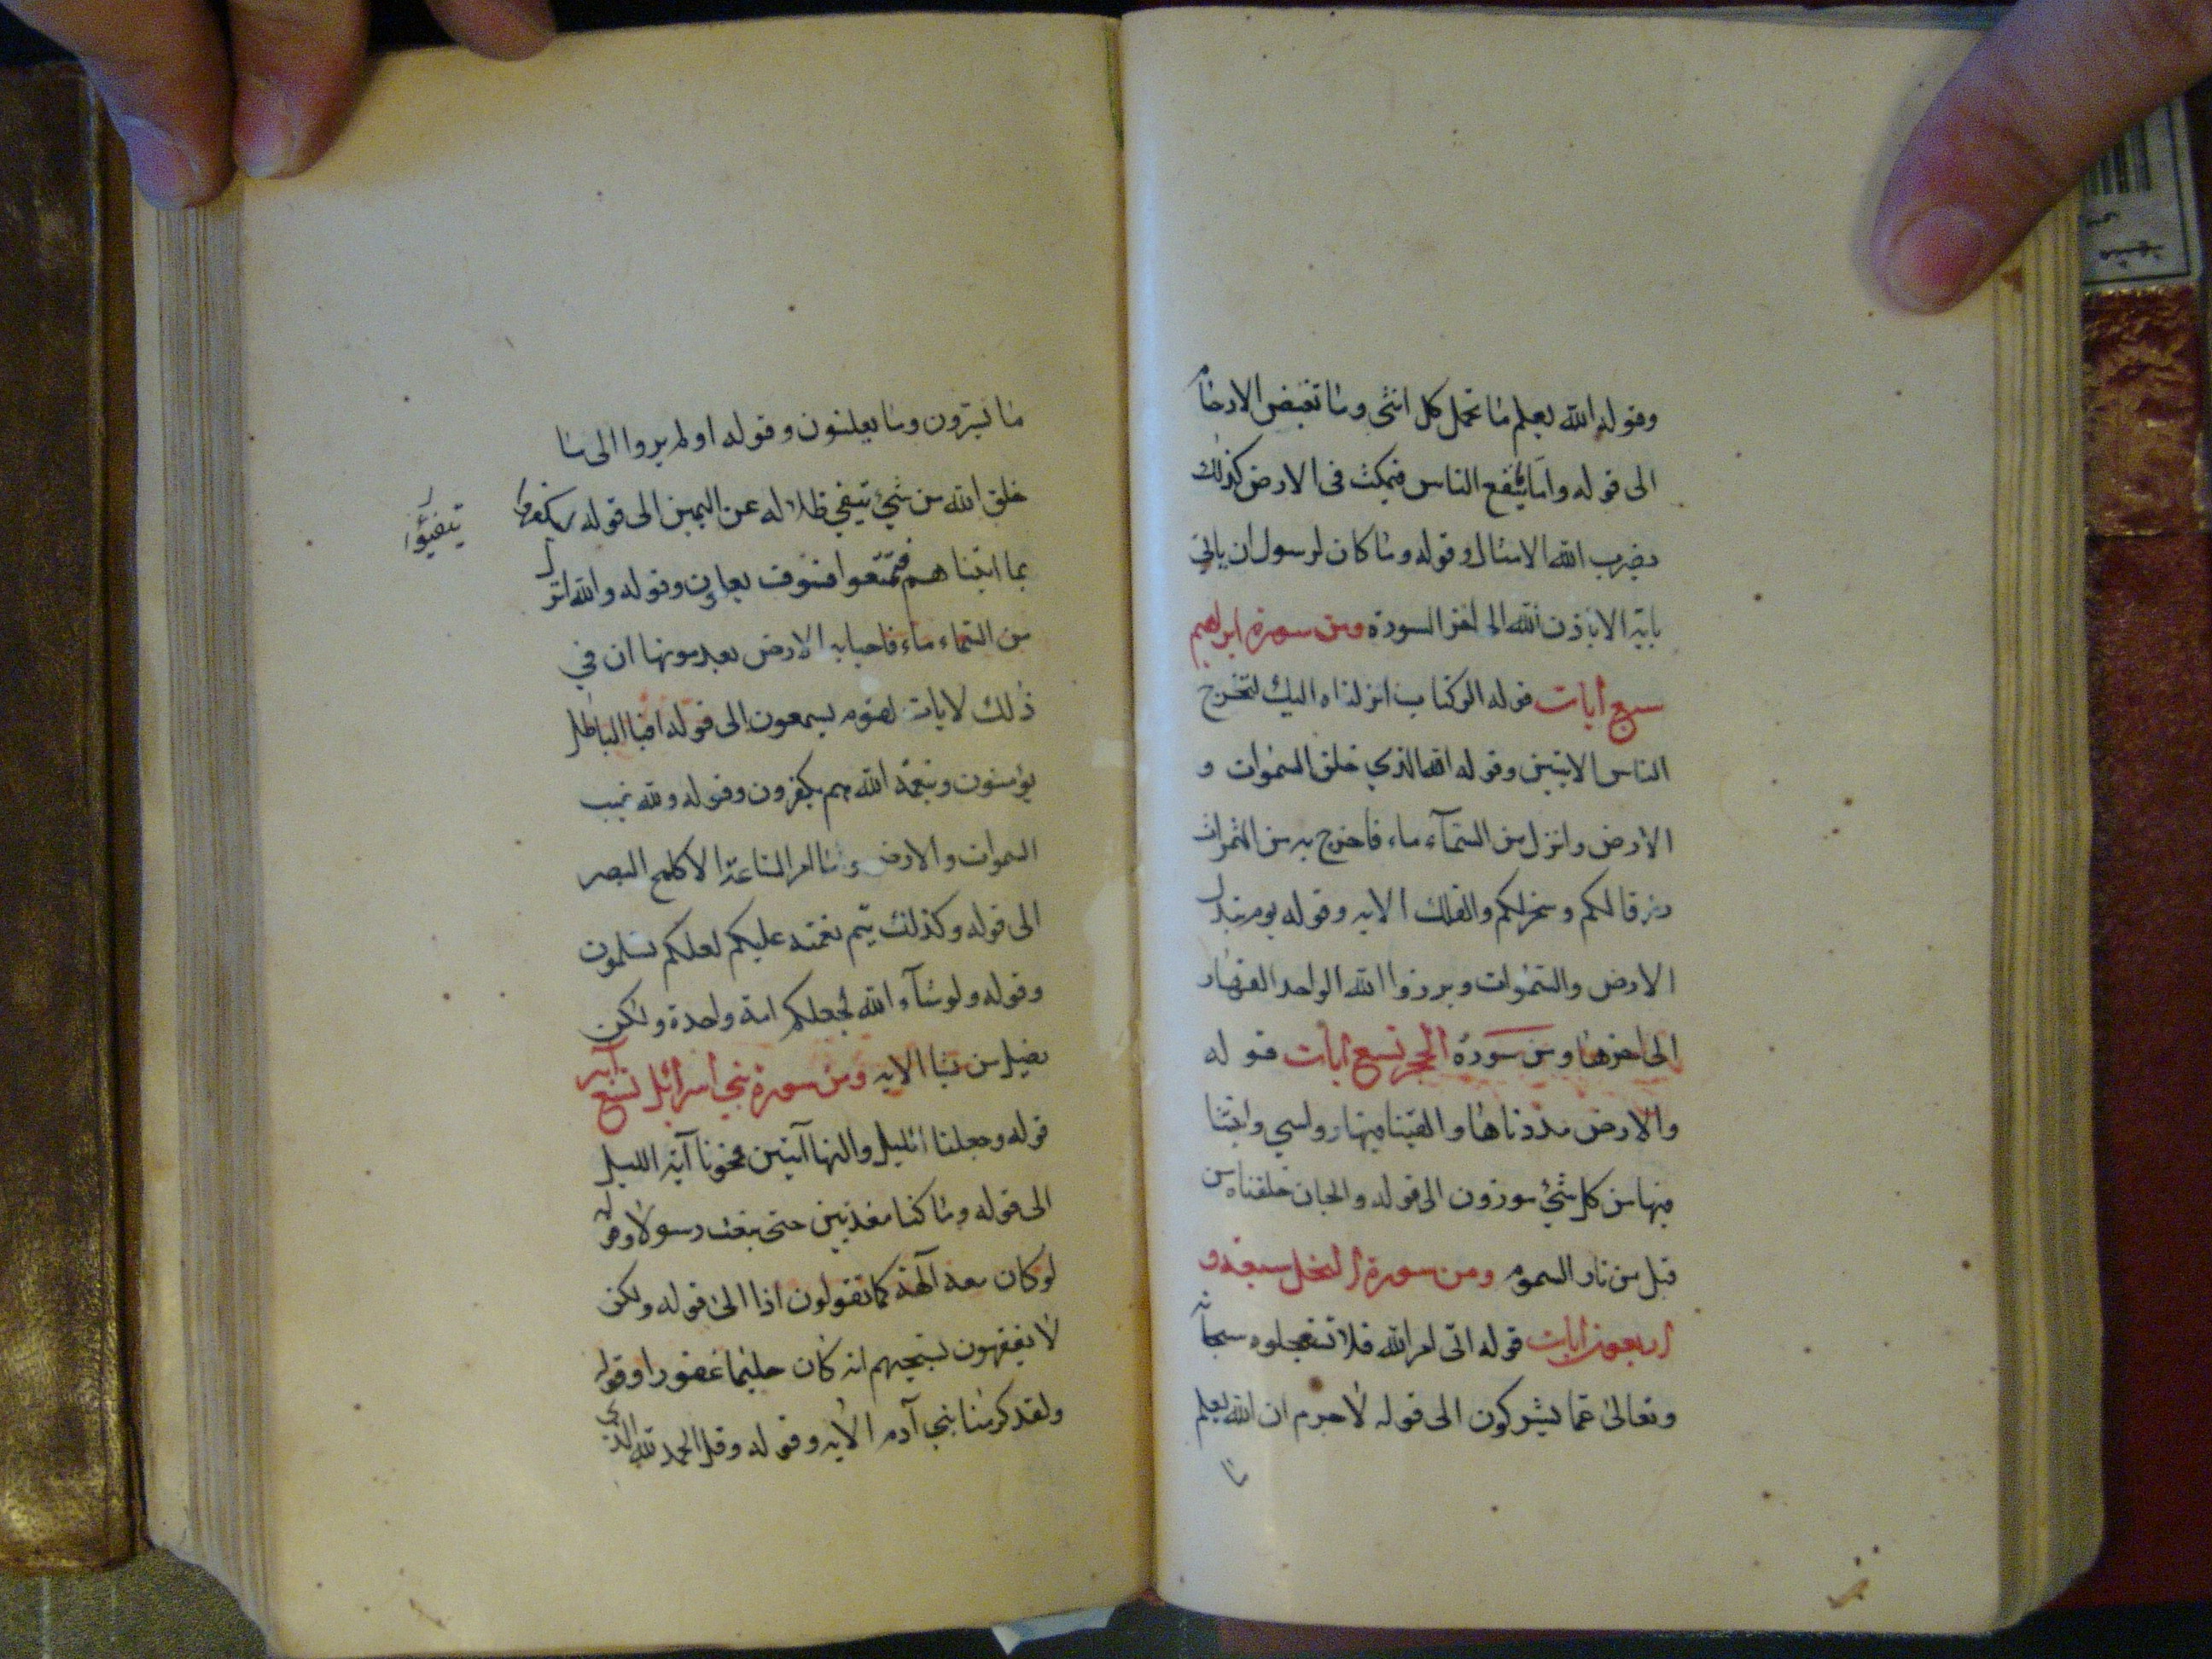 وقوله الله يعلم ما تحمل كل انثى وما تغيض الارحام
الى قوله واما ما ينفع الناس فيمكث فى الارض كذلك
يضرب الله الامثال وقوله وما كان لرسول ان ياتي
باية الا باذن الله الى اخر السورة ومن سورة ابرهيم
سبع ايات قوله الر كتاب انزلناه اليك لتخرج
الناس الايتين وقوله الله الذي خلق السموات و
الارض وانزل من السمآء ماء فاخرج به من الثمرات
رزقا لكم وسخر لكم والفلك الايه وقوله يوم تبدل
الارض والسموات وبرزوا الله الواحد القهار
الى اخرها ومن سورة الحجر تسع ايات قوله
والارض مددناها والقينا فيها رواسي وانبتنا
فيها من كل شئ موزون الى قوله والجان خلقناه من
قبل من نار السموم ومن سورة النحل سبعة و
اربعون ايات قوله اتى امر الله فلا تستعجلوه سبحانه
وتعالى عما يشركون الى قوله لا جرم ان الله يعلم
ما
ما يسرون وما يعلنون وقوله اولم يروا الى ما
خلق الله من شئ يتفئ ظلاله عن اليمين الى قوله ليكفروا
يتفيؤا
بما اتيناهم فتمتعوا فسوف يعلمون وقوله والله انزل
من السماء ماء فاحيا به الارض بعد موتها ان في
ذلك لايات لقوم يسمعون الى قوله افبا الباطل
يؤمنون وبنعمة الله هم يكفرون وقوله ولله غيب
السموات والارض وما امر الساعة الا كلمح البصر
الى قوله وكذلك يتم نعمته عليكم لعلكم تسلمون
وقوله ولو شآء الله لجعلكم امة واحدة ولكن
يضل من يشا الايه ومن سورة بني اسرائل تسع آية
قوله وجعلنا الليل والنها آيتين فمحونا آية الليل
الى قوله وما كنا معذبين حتى نبعث رسولا وقوله
لو كان معه آلهة كما تقولون اذا الى قوله ولكن
لا يفقهون تسبيحهم انه كان حليما غفورا وقوله
ولقد كرمنا بني آدم الايه وقوله وقل الحمد لله الذي